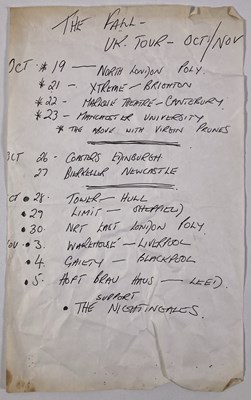 THE FALL -
UK. TOUR - OCT/NOV
OCT - * 19 — NORTH LONDON POLY.
* 21 - XTREME - BRIGHTON
* 22 - MARLOWE THEATRE - CANTERBURY.
* 23 - MANCHESTER UNIVERSITY
* THE ABOVE WITH VIRGIN PRUNES
OCT 26 - COASTERS EDINBURGH
27 NEWCASTLE
28. TOWER - HULL
29 LIMIT - SHEFFIELD
30. NRT EAST LONDON POLY
3. WAREHOUSE - LIVERPOOL
4. GAIETY - BLACKPOOL
5. HOFT BRAU HAUS - LEED.
SUPPORT
• THE NIGHTINGALES.